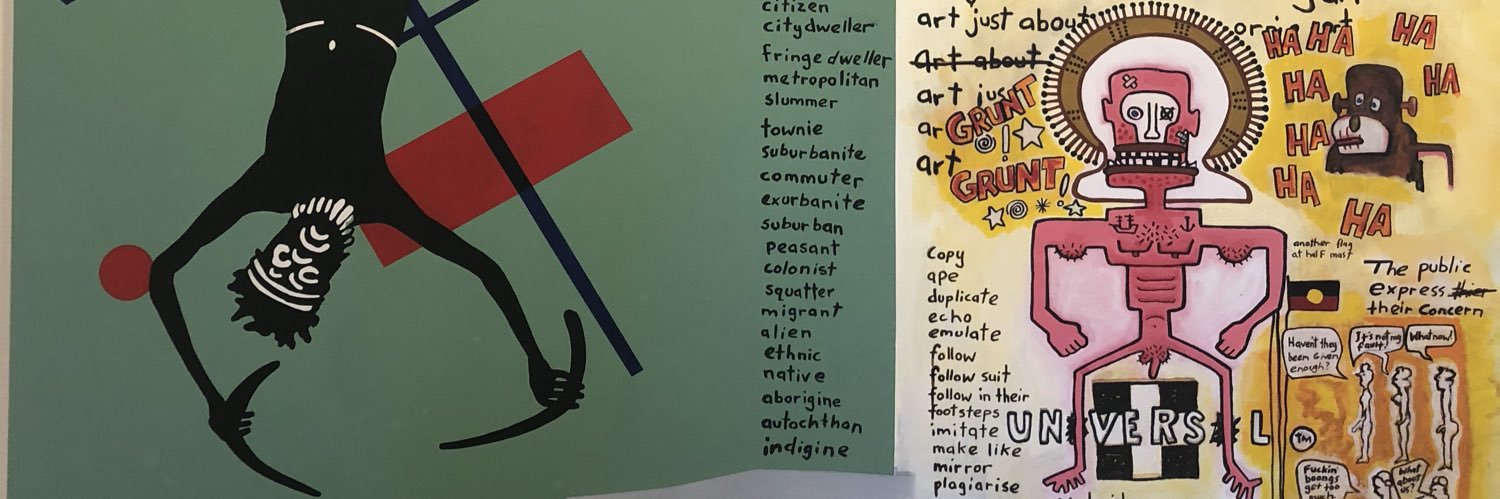 citizen
citydweller
fringe dweller
metropolitan
slummer
townie
suburbanite
commuter
exurbanite
suburban
peasant
colonist
squatter
migrant
alien
ethnic
native
aborigine
autochthon
indigine
art just about
art about
art jus
ar
art
GRUNT
GRUNT!
HA HA
HA
HA
HA
HA
HA
HA
copy
ape
duplicate
echo
emulate
follow
follow suit
follow in their
footsteps
imitate
make like
mirror
plagiarise
UNIVERSAL
TM
another flag
at half mast
The public
express thier
their concern
Haven't they
been given
enough?
It's not my
fault!
What now!
Fuckin'
boongs
get too
much
What
about
us?